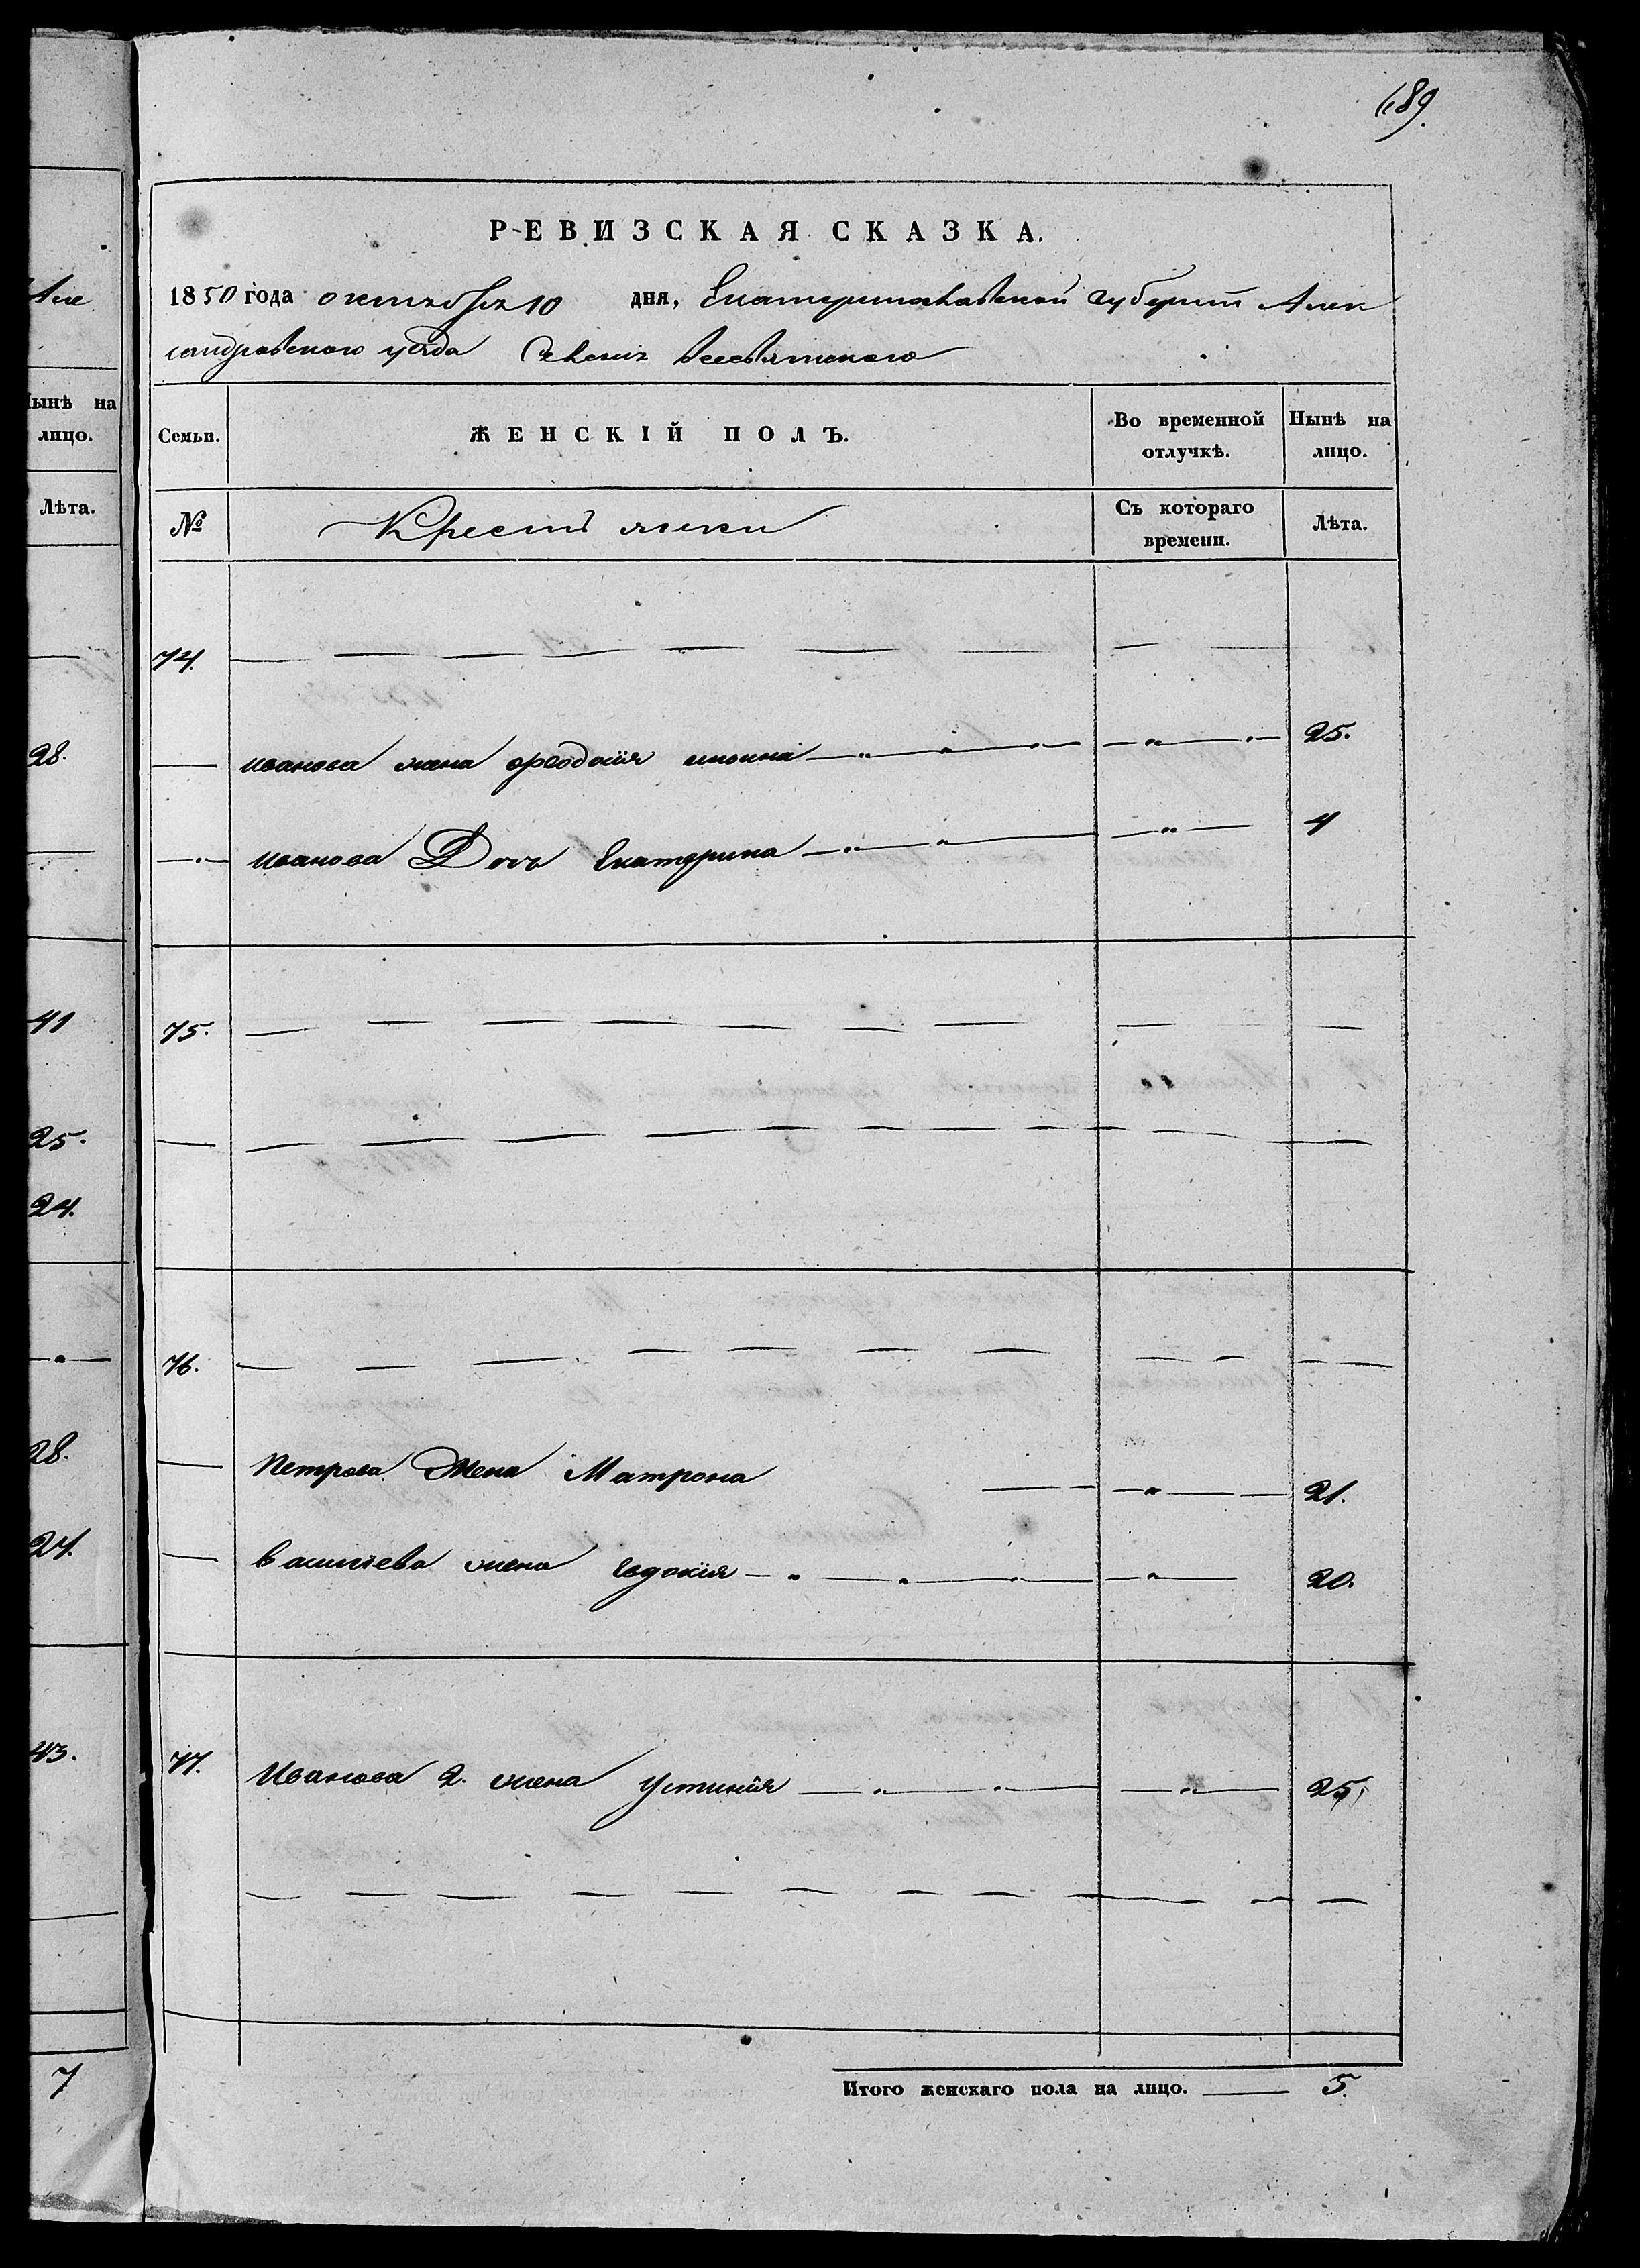 189.
РЕВИЗСКАЯ СКАЗКА.
1850 года октября 10 дня, Екатеринославской губернии Алек
сандровского уезда Всесвятского
Семьи. ЖЕНСКІЙ ПОЛЪ. Во временной отлучкѣ. Нынѣ на лицо.
№ Крестьянки Съ котораго времени. Лѣта.
74.
Иванова жена Феодосія 25.
Иванова Дочь Екатерина 4
75.
76.
Петрова Жена Матрона 21.
Васильева жена Евдокія 20.
77. Иванова 2. жена Устинія 25.
Итого женскаго пола на лицо. 5.
Але
Нынѣ на
лицо.
Лѣта.
28.
41
25.
24.
28.
43.
7